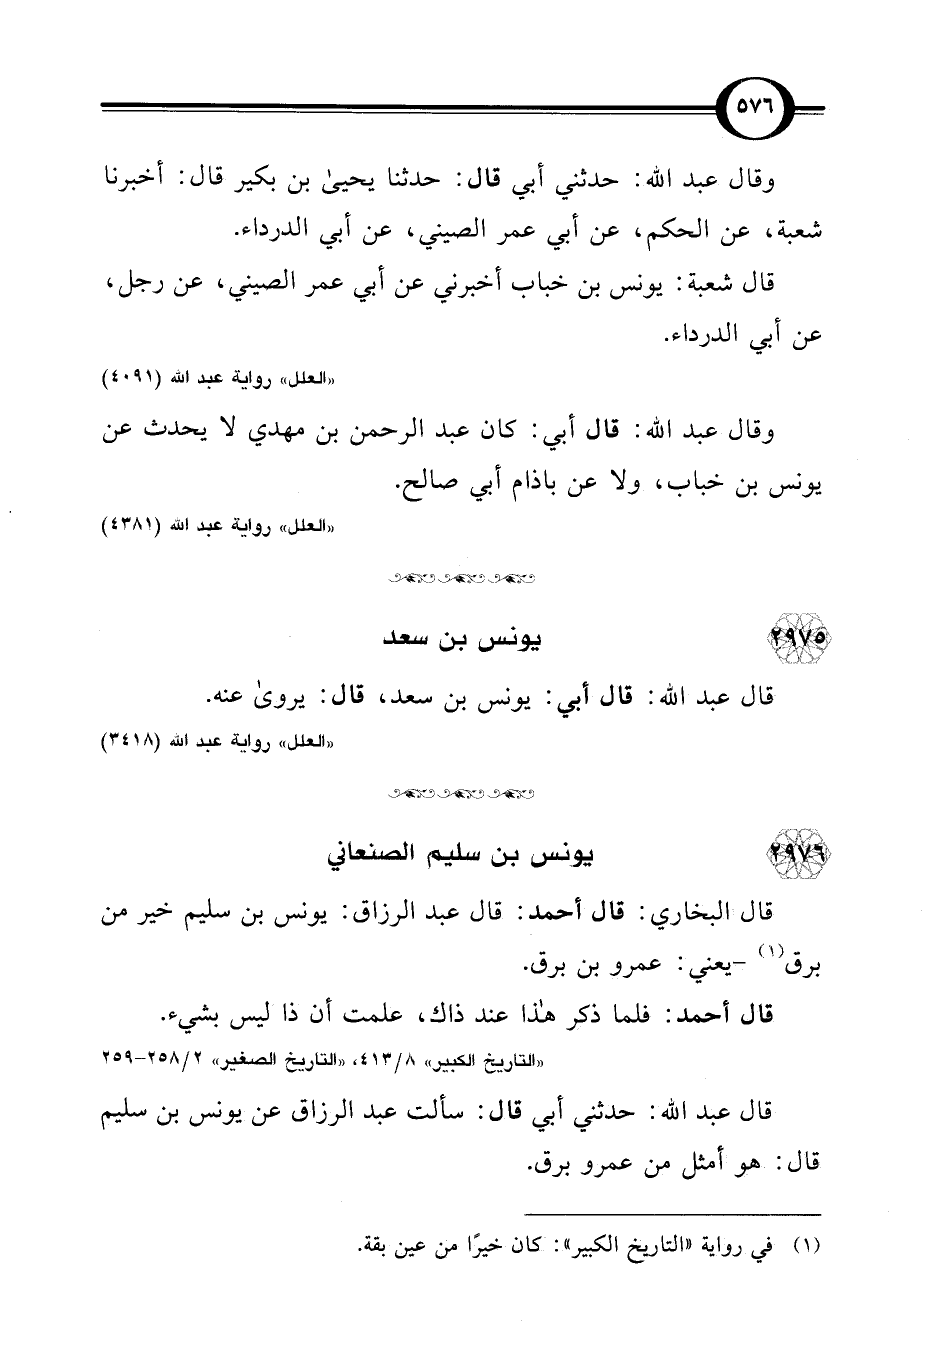 ٥٧٦
وقال عبد الله: حدثني أبي قال: حدثنا يحيىٰ بن بكير قال: أخبرنا
شعبة، عن الحكم، عن أبي عمر الصيني، عن أبي الدرداء.
قال شعبة: يونس بن خباب أخبرني عن أبي عمر الصيني، عن رجل،
عن أبي الدرداء.
«العلل» رواية عبد الله (٤٠٩١)
وقال عبد الله: قال أبي: كان عبد الرحمن بن مهدي لا يحدث عن
يونس بن خباب، ولا عن باذام أبي صالح.
«العلل» رواية عبد الله (٤٣٨١)
٢٩٧٥ يونس بن سعد
قال عبد الله: قال أبي: يونس بن سعد، قال: يروىٰ عنه.
«العلل» رواية عبد الله (٣٤١٨)
٢٩٧٦ يونس بن سليم الصنعاني
قال البخاري: قال أحمد: قال عبد الرزاق: يونس بن سليم خير من
برق(١) -يعني: عمرو بن برق.
قال أحمد: فلما ذكر هٰذا عند ذاك، علمت أن ذا ليس بشيء.
«التاريخ الكبير» ٤١٣/٨، «التاريخ الصغير» ٢٥٨/٢-٢٥٩
قال عبد الله: حدثني أبي قال: سألت عبد الرزاق عن يونس بن سليم
قال: هو أمثل من عمرو برق.
(١) في رواية «التاريخ الكبير»: كان خيرًا من عين بقة.